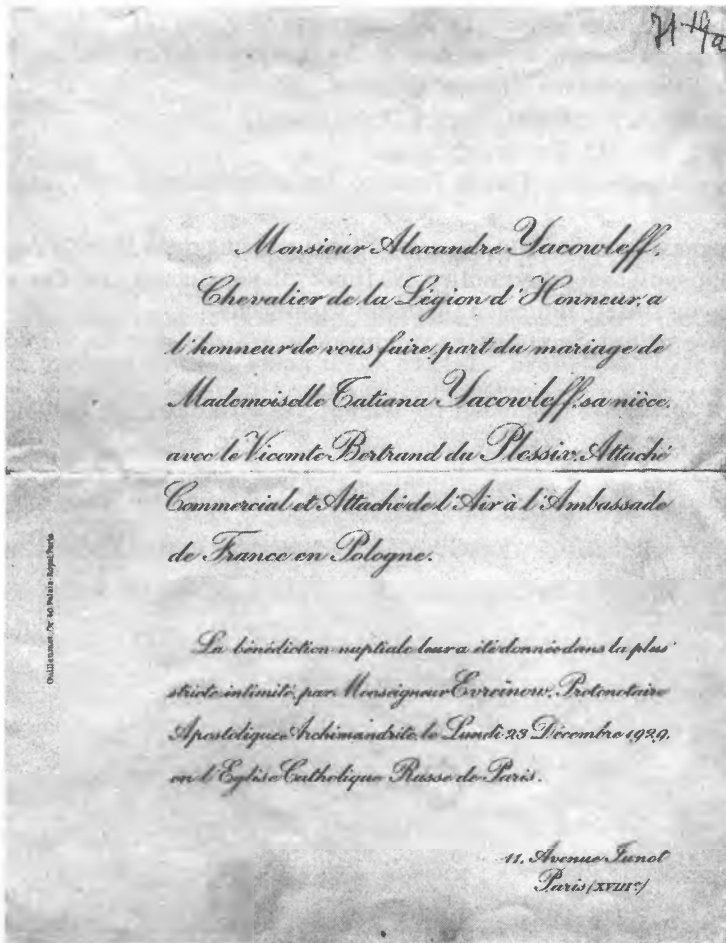 Monsieur Alexandre Yacowleff,
Chevalier de la Légion d'Honneur, a
l'honneur de vous faire part du mariage de
Mademoiselle Tatiana Yacowleff, sa nièce,
avec le Vicomte Bertrand du Plessix, Attaché
Commercial et Attaché de l'Air à l'Ambassade
de France en Pologne.
La bénédiction nuptiale leur a été donnée dans la plus
stricte intimité, par Monseigneur Evreinow, Protonotaire
Apostolique Archimandrite, le Lundi 23 Décembre 1929,
en l'Eglise Catholique Russe de Paris.
11, Avenue Junot
Paris (XVIIIe)
Gr 40 Palais-Royal Paris